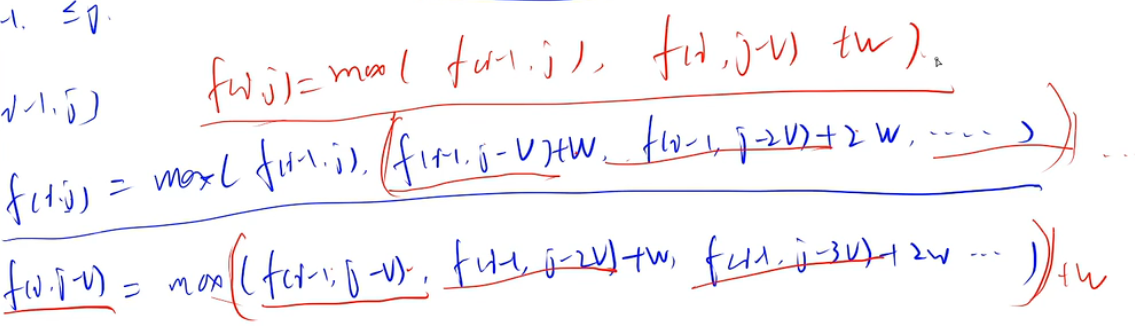 -1. ≤ 0.
f(i,j) = max( f(i-1,j), f(i,j-v) +w ).
i-1,j)
f(i,j) = max( f(i-1,j), f(i-1,j-v)+w, f(i-1,j-2v)+2w, ..... ) ...
f(i,j-v) = max( f(i-1,j-v), f(i-1,j-2v)+w, f(i-1,j-3v)+2w ... ) +w